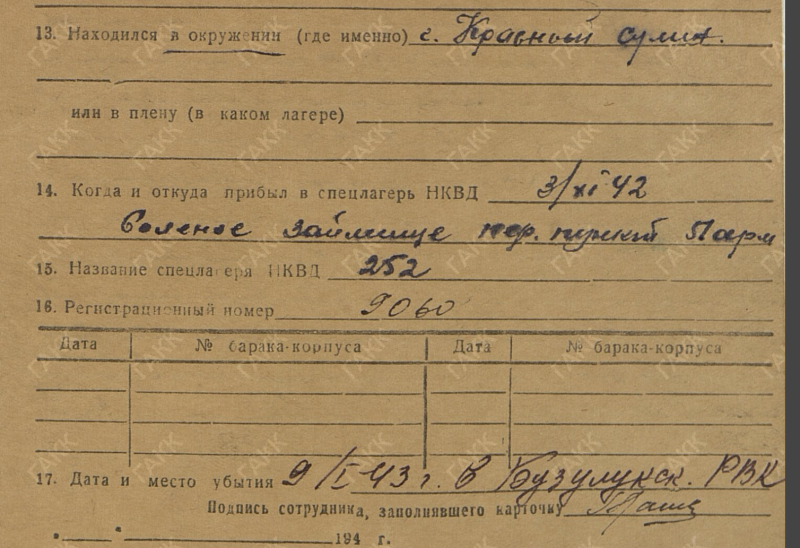 13. Находился в окружении (где именно) г. Красный Сулин.
или в плену (в каком лагере)
14. Когда и откуда прибыл в спецлагерь НКВД 3/XI 42
Соленое Займище пер. пункт 51 арм
15. Название спецлагеря НКВД 252
16. Регистрационный номер 9060
Дата № барака-корпуса Дата № барака-корпуса
17. Дата и место убытия 9/I-43 г. в Бузулукск. РВК
Подпись сотрудника, заполнявшего карточку
" " 194 г.